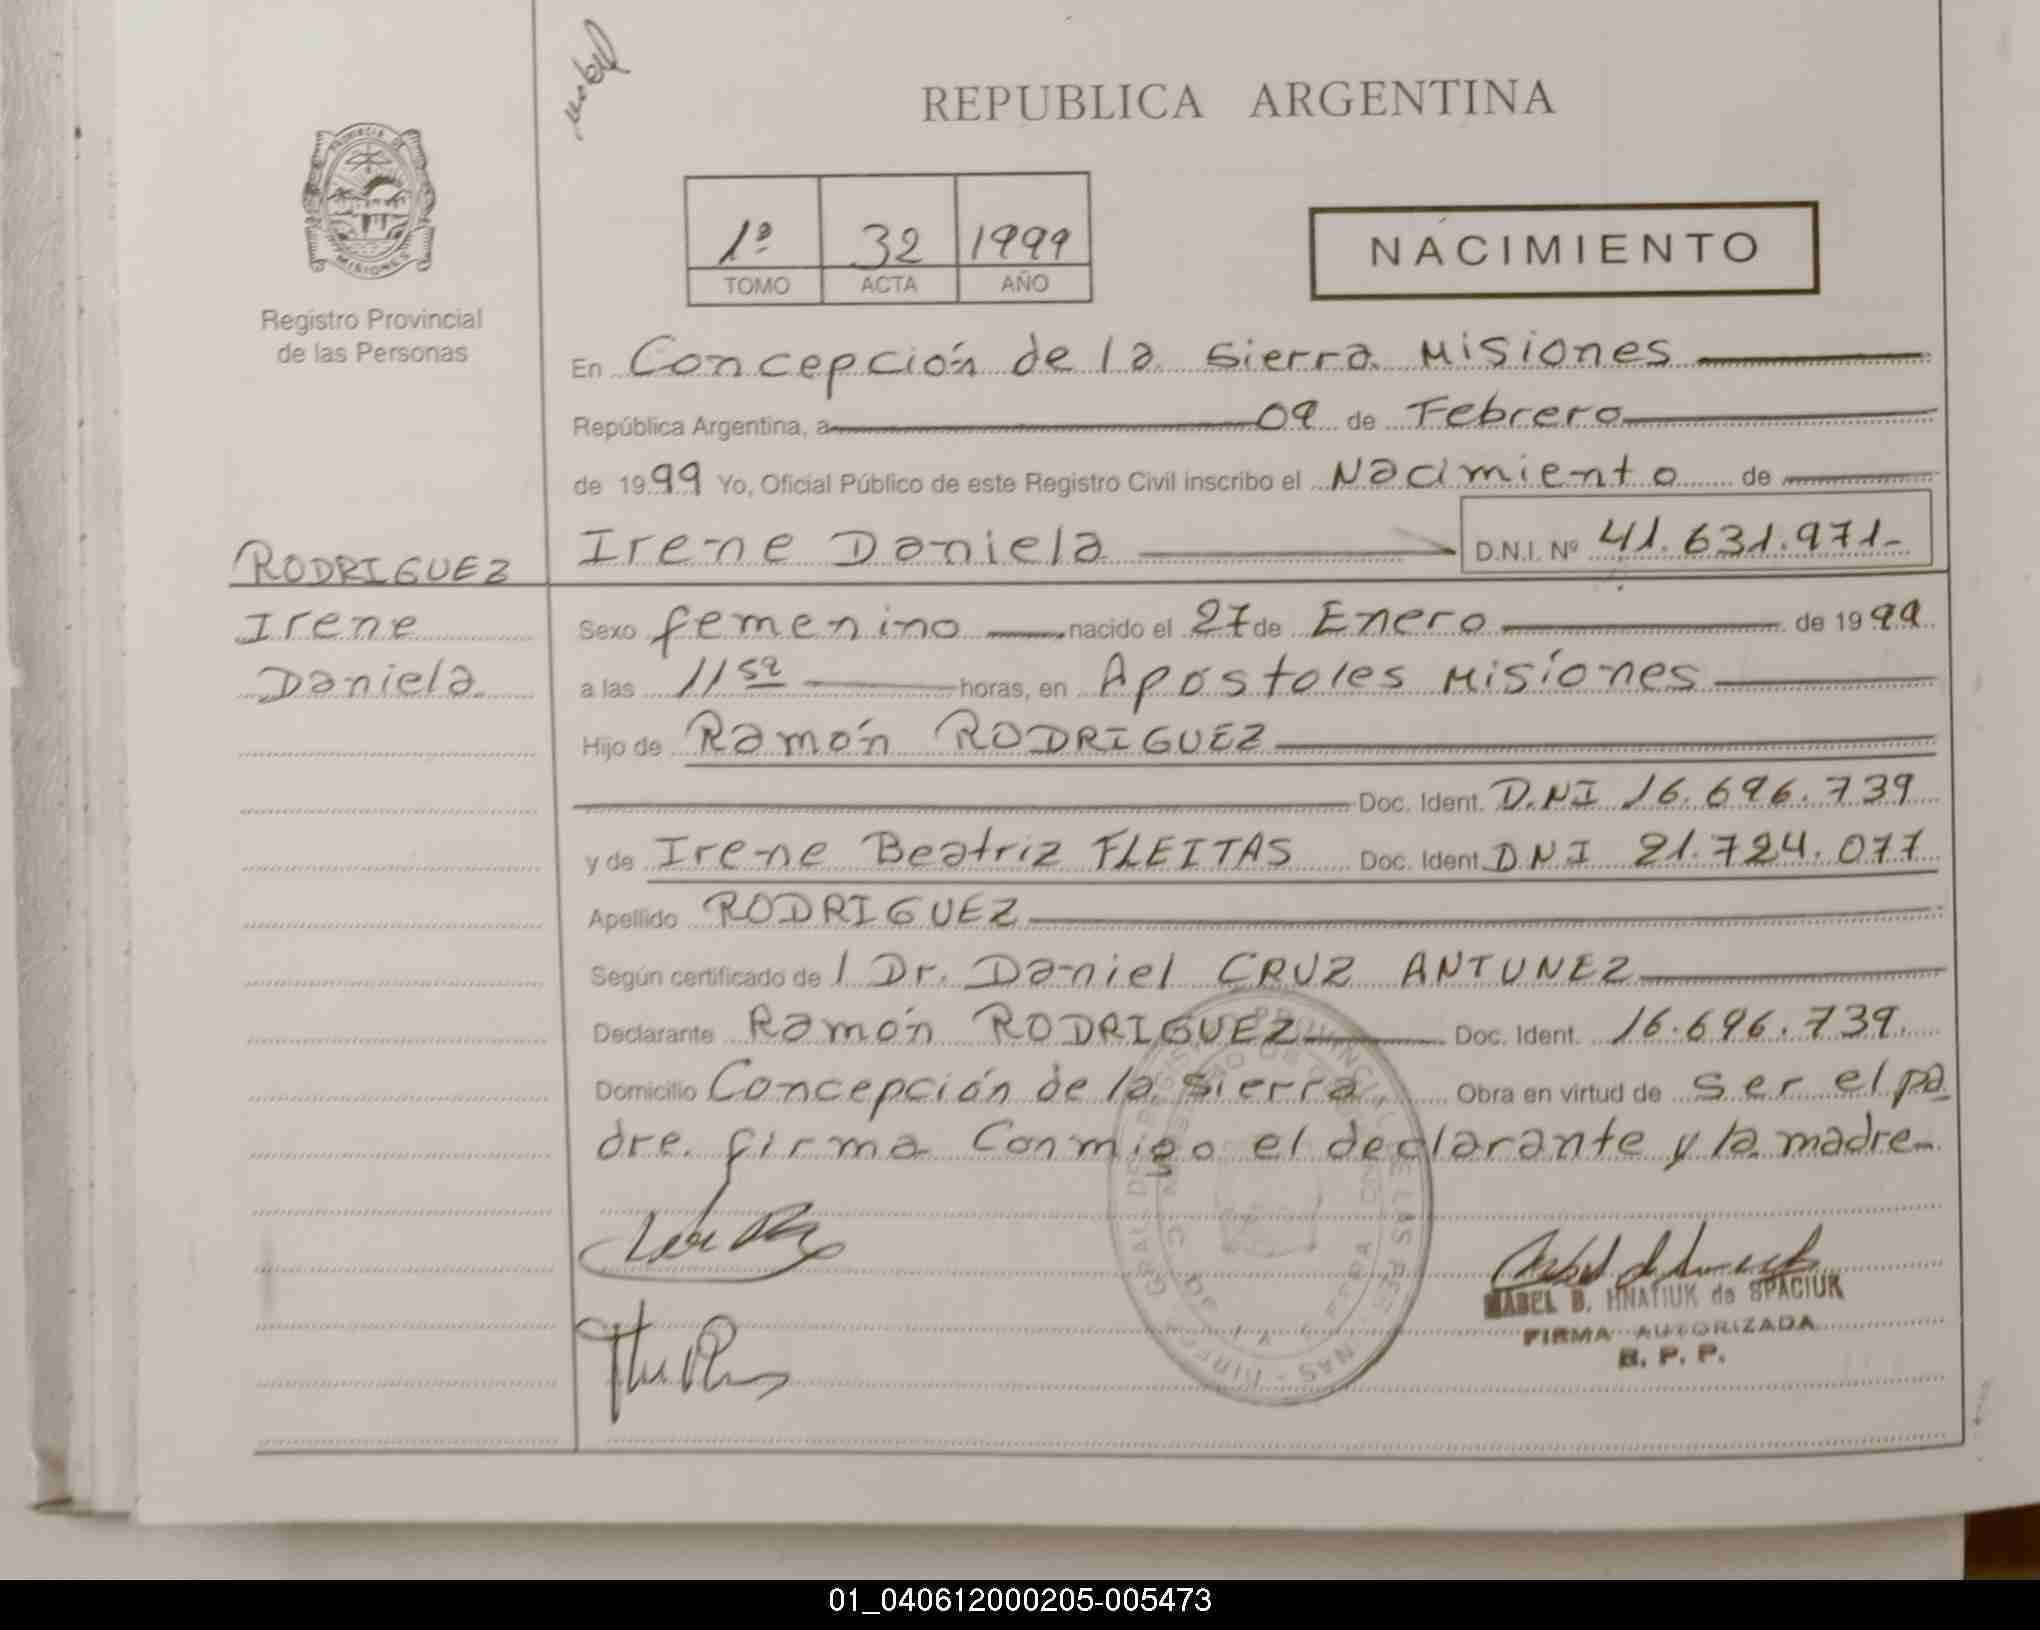 mabel
REPUBLICA ARGENTINA
PROVINCIA DE
MISIONES
1º 32 1999
TOMO ACTA AÑO
NACIMIENTO
Registro Provincial
de las Personas
En Concepción de la Sierra Misiones
República Argentina, a 09 de Febrero
de 1999 Yo, Oficial Público de este Registro Civil inscribo el Nacimiento de
RODRIGUEZ Irene Daniela D.N.I. Nº 41.631.971-
Irene Sexo femenino nacido el 27 de Enero de 1999
Daniela a las 11 50 horas, en Apóstoles Misiones
Hijo de Ramón RODRIGUEZ
Doc. Ident. D.NI 16.696.739
y de Irene Beatriz FLEITAS Doc. Ident. DNI 21.724.077
Apellido RODRIGUEZ
Según certificado de / Dr. Daniel CRUZ ANTUNEZ
Declarante Ramón RODRIGUEZ Doc. Ident. 16.696.739.
Domicilio Concepción de la Sierra Obra en virtud de ser el pa
dre. firma Conmigo el declarante y la madre
MABEL B. HNATIUK de SPACIUK
FIRMA AUTORIZADA
R. P. P.
01_040612000205-005473